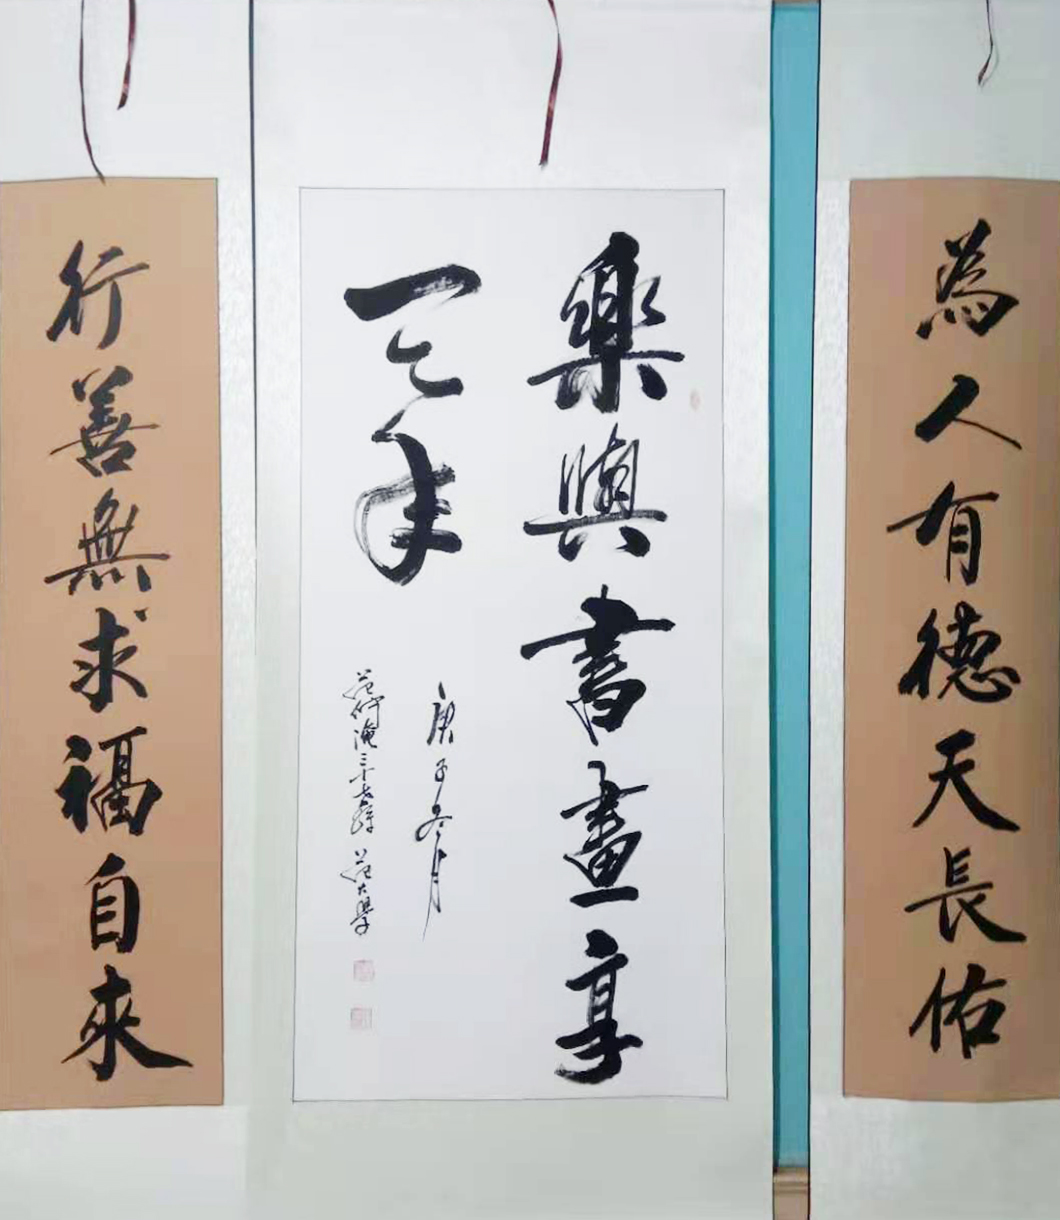 為人有德天長佑
樂與書畫享
天年
庚子冬月
范仲淹三十七孫 范大學
行善無求福自來